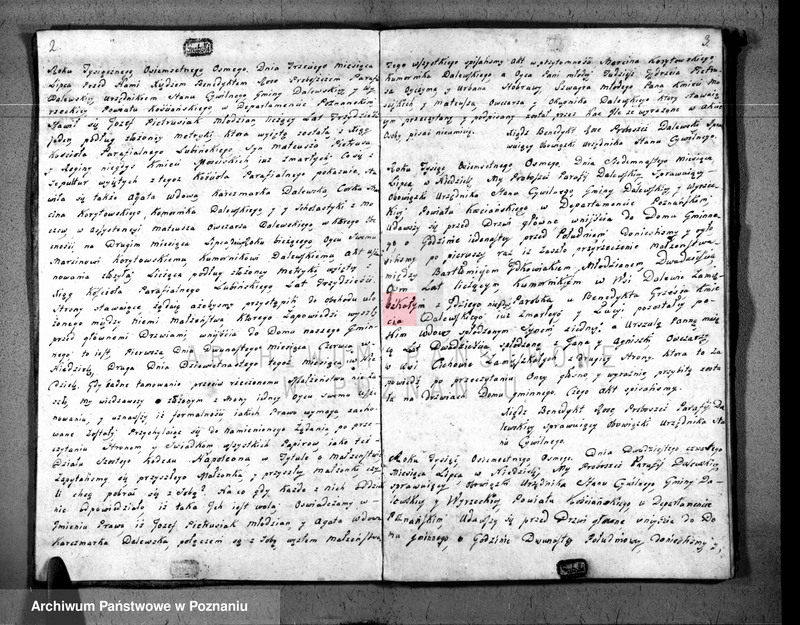 2.
Roku Tysiącznego Osiemsetnego Osmego. Dnia Trzeciego Miesiąca
Lipca Przed Nami Xiędzem Benedyktem Rose Proboszczem Parafii
Dalewskiey Urzędnikiem Stanu Cywilnego Gminy Dalewskiey y Wy-
rzeckiey Powiatu Kościańskiego w Departamencie Poznańskim
stawił się Jozef Pietrusiak młodzian liczący Lat Trzydzieści
jeden podług złożoney metryki która wyjęta została z Xiąg
Kościoła Parafialnego Lubińskiego, Syn Mateusza Pietrusa
y Reginy niegdy Kmieci już zmarłych Co się z
wyjętych z tegoż Kościoła Parafialnego pokazuie. Sta-
wiła się także Agata Wdowa Karczmarka Dalewska, Corka Mar-
cina Korytowskiego Komornika Dalewskiego y Scholastyki z Mo-
w assystencyi Mateusza Owczarza Dalewskiego, w którego
na Drugim Miesiąca bieżącego Oycu Swemu
Marcinowi Korytowskiemu Komornikowi Dalewskiemu Akt
Licząca podług złożoney Metryki wyjętey z
Xiąg Kościoła Parafialnego Lubińskiego Lat Trzydzieści.
Strony stawaiące żądaią ażebyśmy przystąpili do obchodu uło-
żonego między niemi Małżeństwa, którego Zapowiedzi wyszły
przed głownemi Drzwiami wniyścia do Domu naszego Gmin-
nego to iest, Pierwsza Dnia Dwunastego miesiąca Czerwca w
Niedzielę, Druga Dnia Dziewiętnastego tegoż miesiąca w Nie-
dzielę. Gdy żadne tamowanie przeciw rzeczonemu Małżeństwu nie za-
szło, My widzący złożonym z strony iedney Oycu swemu usza-
nowaniu, y uznaiąc iż formalności iakich Prawo wymaga zacho-
wane zostały. Przychylaiąc się do namienionego żądania, po prze-
czytaniu Stronom y Świadkom wszystkich Papierow iako też
Działu Szóstego Kodexu Napoleona w Tytule o Małżeństwie
Zapytaliśmy się przyszłego Małżonka, y przyszłey Małżonki czy-
li chcą pobrać się z Sobą? Na co gdy każde z nich oddziel-
nie odpowiedziało iż taka iest wola: Oświadczamy w
Imieniu Prawa iż Jozef Pietrusiak Młodzian, y Agata Wdowa
Karczmarka Dalewska połączeni są z sobą węzłem Małżeństwa
3.
Tego wszystkiego spisaliśmy Akt w przytomności Marcina Korytowskiego
Komornika Dalewskiego a Oyca Pani młodey Tudzież
Oyczyma y Urbana Szwagra młodego Pana Kmieci
y Mateusza Owczarza y Okupnika Dalewskiego który
przeczytany y podpisany został przez Nas gdyż wyrażone w akcie
Osoby pisać nieumieią. Xiądz Benedykt Rose Proboszcz Dalewski Spra-
wuiący Obowiązki Urzędnika Stanu Cywilnego.
Roku Tysiąc Osiemsetnego Osmego. Dnia Siedmnastego Miesiąca
Lipca, w Niedzielę, My Proboszcz Parafii Dalewskiey, sprawuiący
Obowiązki Urzędnika Stanu Cywilnego Gminy Dalewskiey y Wyrzec-
kiey Powiatu Kościańskiego w Departamencie Poznańskim,
Udawszy się przed Drzwi głowne wniyścia do Domu Gminne-
go o Godzinie iedenastey przed Południem Donieśliśmy y ogło-
siliśmy po pierwszy raz iż zaszło przyrzeczenie Małżeństwa
między Bartłomiejem Młodzianem, Dwadzieścia
Lat liczącym, Komornikiem w Wsi Dalewie Zamię-
szkałym z niegdy Parobka, y Benedykta Kmie-
cia Dalewskiego już zmarłego y Łucyi pozostałey po
nim Wdowy spłodzonym Synem z iedney: a Urszulą Panną mają-
cą Lat Dwadzieścia spłodzoną z Jana y Agnieszki Owczarzy
w Wsi Cichowie Zamieszkałych z drugiey Strony, która to Za-
powiedź po przeczytaniu Oney głośno y wyraźnie, przybita zosta-
ła na Drzwiach Domu gminnego. Czego Akt spisaliśmy.
Xiądz Benedykt Rose Proboszcz Parafii Da-
lewskiey sprawuiący Obowiązki Urzędnika Sta-
nu Cywilnego.
Roku Tysiąc, Osiemsetnego Osmego. Dnia Dwudziestego czwartego
Miesiąca Lipca w Niedzielę, My Proboszcz Parafii Dalewskiey,
sprawuiący Obowiązki Urzędnika Stanu Cywilnego Gminy Da-
lewskiey y Wyrzeckiey, Powiatu Kościańskiego w Departamencie
Poznańskim Udawszy się przed Drzwi głowne wniyścia do Do-
mu gminnego, o Godzinie Dwunastey Południowey, donieśliśmy y
ARCHIWUM PAŃSTWOWE
W POZNANIU
Archiwum Państwowe w Poznaniu